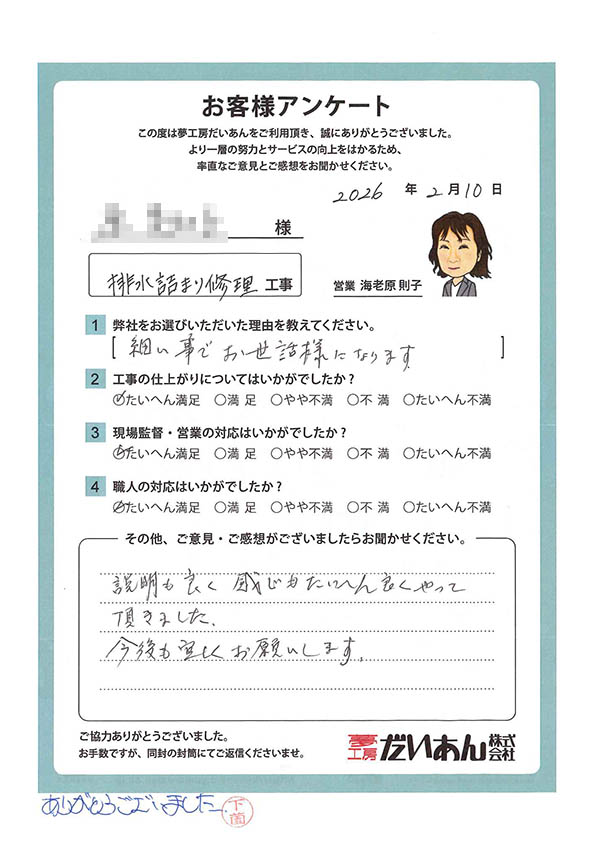 お客様アンケート
この度は夢工房だいあんをご利用頂き、誠にありがとうございました。
より一層の努力とサービスの向上をはかるため、
率直なご意見とご感想をお聞かせください。
2026 年 2 月 10 日
様
排水詰まり修理 工事
営業 海老原 則子
1 弊社をお選びいただいた理由を教えてください。
[ 細い事でお世話様になります ]
2 工事の仕上がりについてはいかがでしたか？
○たいへん満足 ○満 足 ○やや不満 ○不 満 ○たいへん不満
3 現場監督・営業の対応はいかがでしたか？
○たいへん満足 ○満 足 ○やや不満 ○不 満 ○たいへん不満
4 職人の対応はいかがでしたか？
○たいへん満足 ○満 足 ○やや不満 ○不 満 ○たいへん不満
その他、ご意見・ご感想がございましたらお聞かせください。
説明も良く 感じもたいへん良くやって
頂きました、
今後も宜しくお願いします。
ご協力ありがとうございました。
お手数ですが、同封の封筒にてご返信くださいませ。
夢工房 だいあん 株式会社
ありがとうございました 下箇